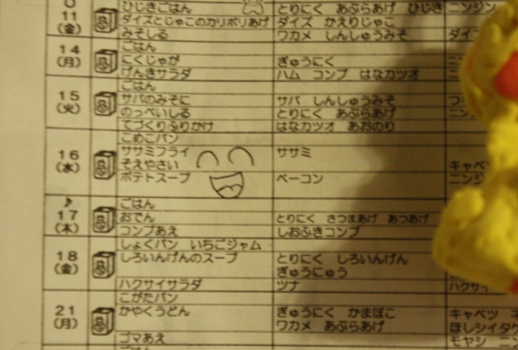 11 ひじきごはん とりにく あぶらあげ ひじき ニンジン
(金) ダイズとじゃこのカリポリあげ ダイズ かえりじゃこ
みそしる ワカメ しんしゅうみそ ダイ
14 ごはん
(月) にくじゃが ぎゅうにく
げんきサラダ ハム コンブ はなカツオ
15 ごはん
(火) サバのみそに サバ しんしゅうみそ
のっぺいしる とりにく あぶらあげ
てづくりふりかけ はなカツオ あおのり
16 こめこパン
(水) ササミフライ ササミ
そえやさい キャベ
ポテトスープ ベーコン ニンジ
♪ ごはん
17 おでん とりにく さつまあげ あつあげ
(木) コンブあえ しおふきコンブ
18 しょくパン いちごジャム
(金) しろいんげんのスープ とりにく しろいんげん
ぎゅうにゅう
ハクサイサラダ ツナ ハクサイ
21 こがたパン
(月) かやくうどん ぎゅうにく かまぼこ キャベツ
ワカメ あぶらあげ ほしシイタケ
ゴマあえ モヤシ ニンジ
ごはん